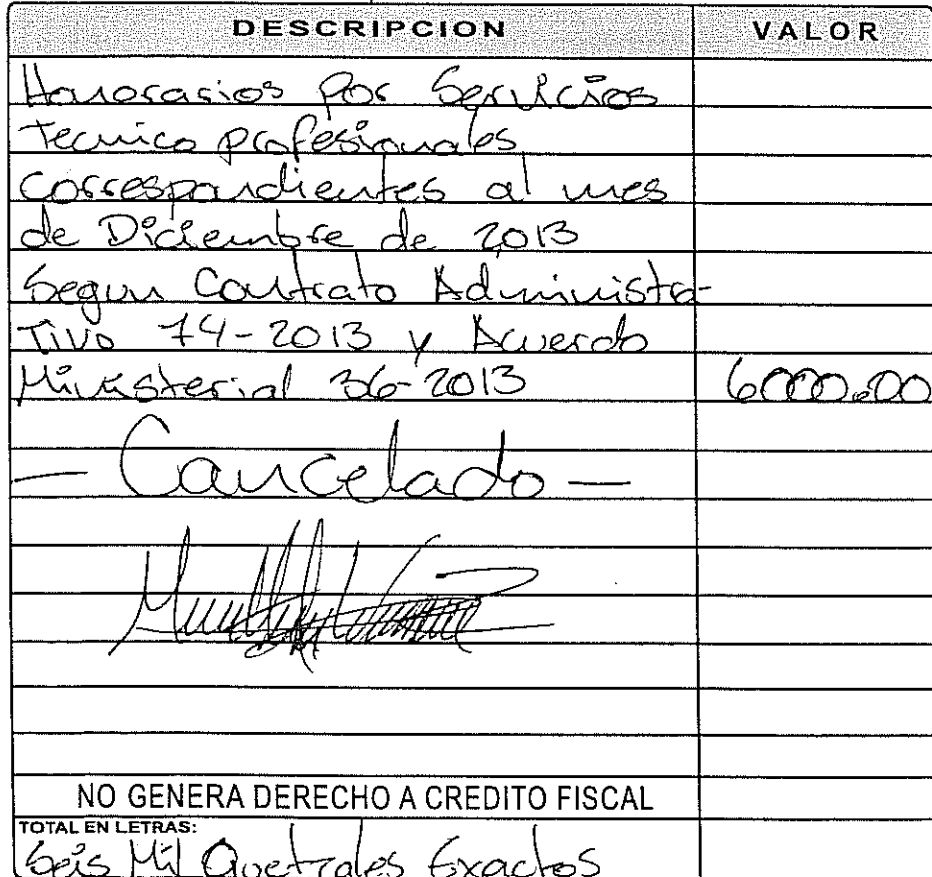 DESCRIPCION VALOR
Honorarios Por Servicios
Tecnico profesionales
correspondientes al mes
de Diciembre de 2013
Segun Contrato Administra-
Tivo 74-2013 y Acuerdo
Ministerial 36-2013 6000.00
- Cancelado -
NO GENERA DERECHO A CREDITO FISCAL
TOTAL EN LETRAS:
Seis Mil Quetzales Exactos